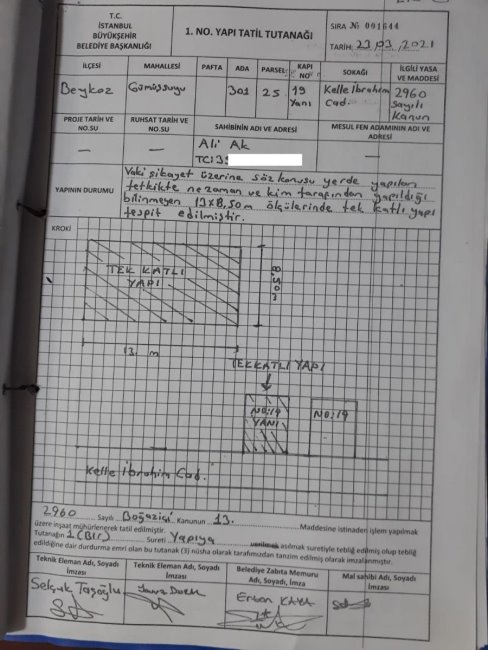 T.C.
İSTANBUL
BÜYÜKŞEHİR
BELEDİYE BAŞKANLIĞI
1. NO. YAPI TATİL TUTANAĞI
SIRA № 001644
TARİH: 23.03.2021
İLÇESİ
MAHALLESİ
PAFTA
ADA
PARSEL
KAPI NO
SOKAĞI
İLGİLİ YASA VE MADDESİ
Beykoz
Gümüşsuyu
301
25
19 Yanı
Kelle İbrahim Cad.
2960 sayılı Kanun
PROJE TARİH VE NO.SU
RUHSAT TARİH VE NO.SU
SAHİBİNİN ADI VE ADRESİ
MESUL FEN ADAMININ ADI VE ADRESİ
—
—
Ali Ak
TC:35
—
YAPININ DURUMU
Vaki şikayet üzerine söz konusu yerde yapılan
tetkikte ne zaman ve kim tarafından yapıldığı
bilinmeyen 13x8,50m ölçülerinde tek katlı yapı
tespit edilmiştir.
KROKİ
TEK KATLI
YAPI
8,50m
13. m
TEK KATLI YAPI
NO:19
YANI
NO:19
Kelle İbrahim Cad.
2960 Sayılı Boğaziçi Kanunun 13. Maddesine istinaden işlem yapılmak
üzere inşaat mühürlenerek tatil edilmiştir.
Tutanağın 1 (Bir) Sureti Yapıya verilmek asılmak suretiyle tebliğ edilmiş olup tebliğ
edildiğine dair durdurma emri olan bu tutanak (3) nüsha olarak tarafımızdan tanzim edilmiş olarak imzalanmıştır.
Teknik Eleman Adı, Soyadı
İmzası
Teknik Eleman Adı, Soyadı
İmzası
Belediye Zabıta Memuru
Adı, Soyadı, İmza
Mal sahibi Adı, Soyadı
İmzası
Selçuk Taşoğlu
Erban KAYA